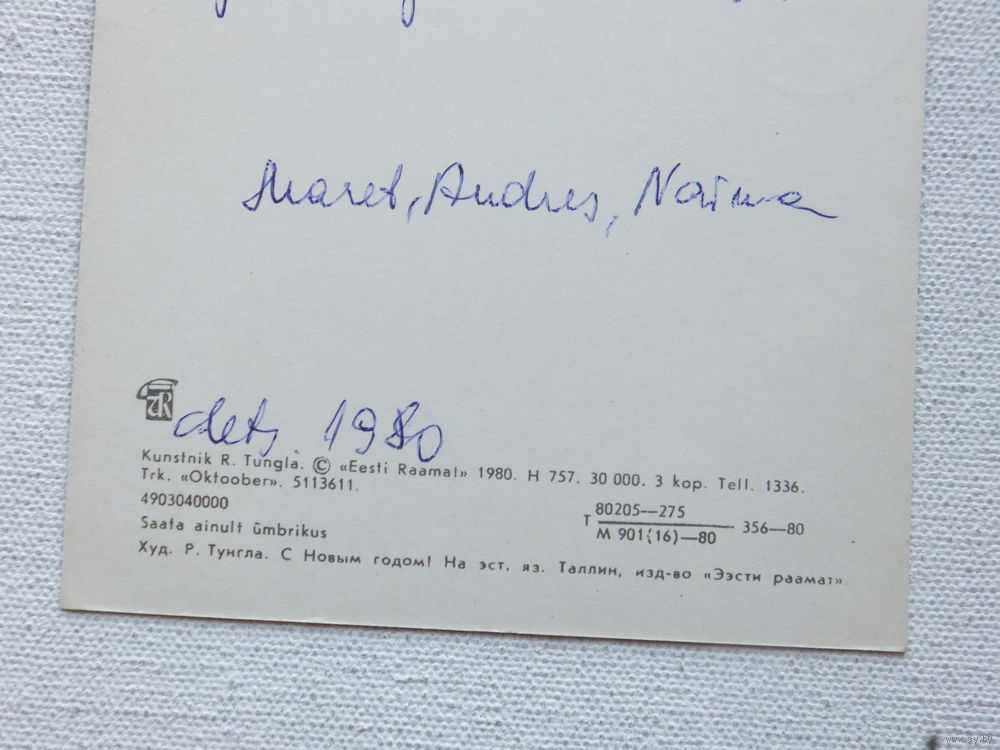 Maret, Andres, Naima
dets. 1980
Kunstnik R. Tungla. © «Eesti Raamat» 1980. H 757. 30 000. 3 kop. Tell. 1336.
Trk. «Oktoober». 5113611.
4903040000
Saata ainult ümbrikus
Т 80205—275
М 901(16)—80
356—80
Худ. Р. Тунгла. С Новым годом! На эст. яз. Таллин, изд-во «Ээсти раамат».
www.ay.by